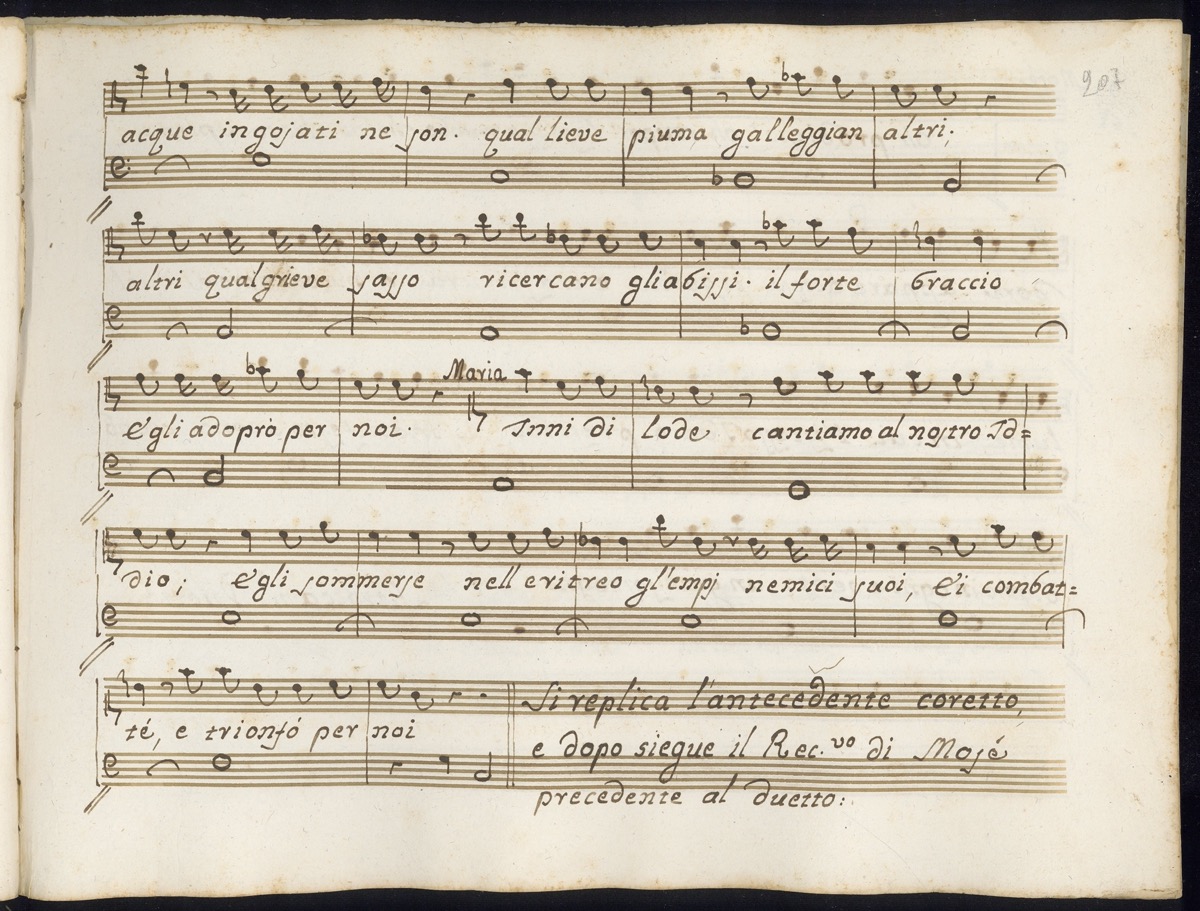 207
acque ingojati ne son. qual lieve piuma galleggian altri;
altri qual grieve sasso ricercano gli abissi. il forte braccio
Maria
Egli adoprò per noi. Inni di lode cantiamo al nostro Id=
dio; Egli sommerse nell eritreo gl'empj nemici suoi, Ei combat=
té, e trionfó per noi
Si replica l'antecedente coretto,
e dopo siegue il Rec.vo di Mosé
precedente al duetto: